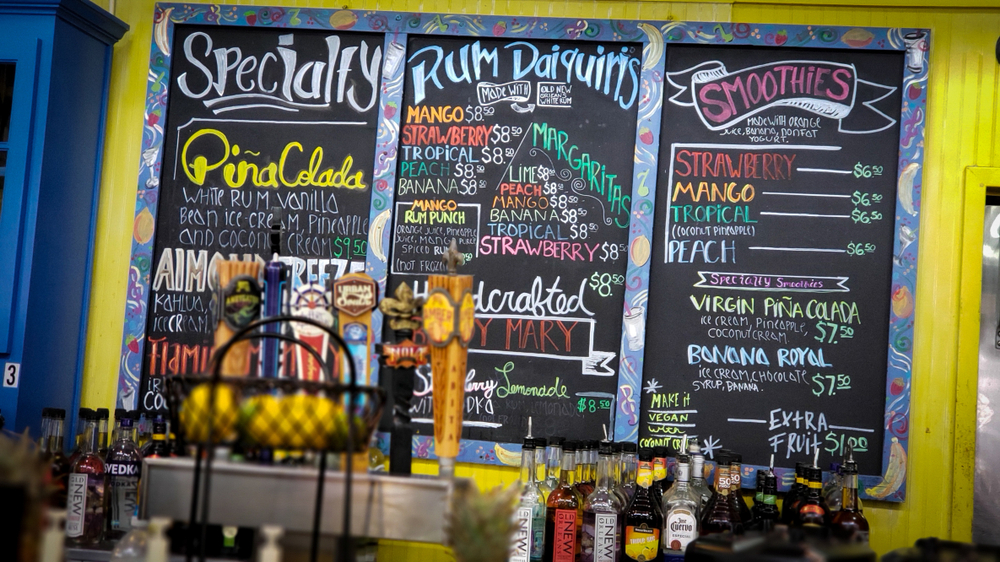 Specialty
Piña Colada
White Rum, Vanilla
Bean ice cream, Pineapple
and coconut cream $9.50
Almond Freeze
Kahlua,
ice cream,
Rum Daiquiris
MADE WITH
OLD NEW
ORLEANS
WHITE RUM
MANGO $8.50
STRAWBERRY $8.50
TROPICAL $8.50
PEACH $8.50
BANANA $8.50
MANGO
RUM PUNCH
ORANGE JUICE, PINEAPPLE
JUICE, MANGO PUREE
SPICED RUM
(NOT FROZEN)
MARGARITAS
LIME $8.50
PEACH $8.50
MANGO $8.50
BANANA $8.50
TROPICAL $8.50
STRAWBERRY $8.50
$8.50
Handcrafted
MARY
Lemonade
$8.50
SMOOTHIES
Made with orange
juice, Banana, nonfat
yogurt.
STRAWBERRY $6.50
MANGO $6.50
TROPICAL $6.50
(coconut pineapple)
PEACH $6.50
Specialty Smoothies
VIRGIN PIÑA COLADA
ice cream, Pineapple,
coconut cream $7.50
BANANA ROYAL
ice cream, chocolate
syrup, Banana. $7.50
MAKE it
VEGAN
with
coconut
EXTRA
FRUIT $1.00
3
URBAN
SOUTH
NOLA
AMBER
NEW
VEDKA
OLD
NEW
OLD
NEW
TRIPLE SEC
Jose
Cuervo
ESPECIAL
50